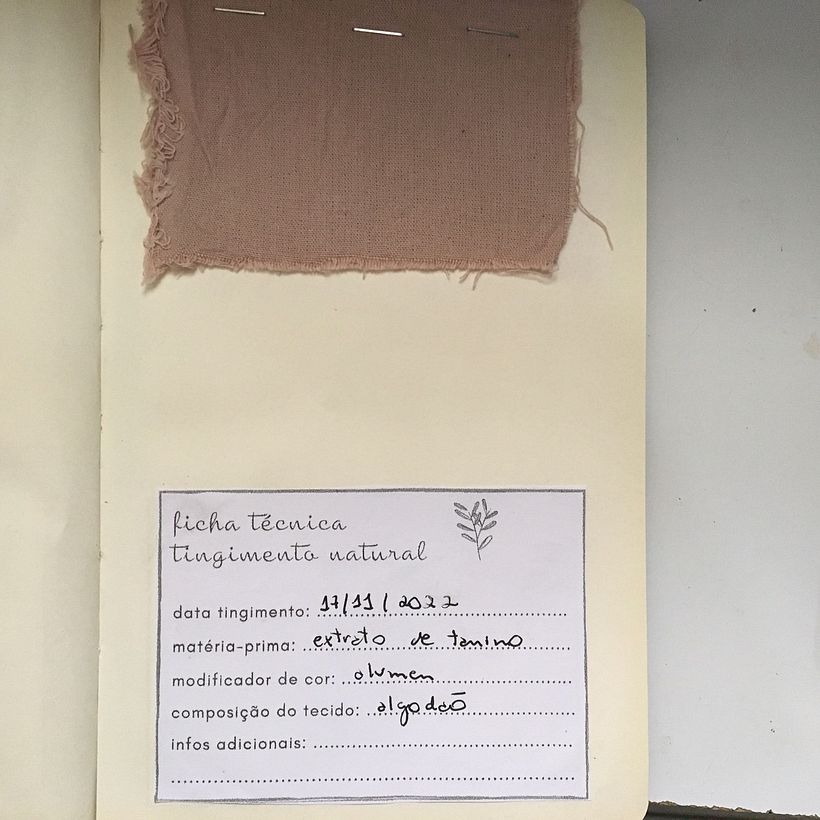 ficha técnica
tingimento natural
data tingimento: 17/11/2022
matéria-prima: extrato de tanino
modificador de cor: alumen
composição do tecido: algodão
infos adicionais: